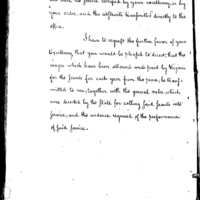 and the same certified by your excellency, or by
your order, and the affidavits transmitted directly to this
office.
I have to request the further favor of your
Excellency that you would be pleased to direct, that the
wages which have been allowed and paid by Virginia
for the family for each year from the year, be transmitted
to me, together with the general rules which
were directed by the State for calling said family into
service, and the evidence required of the performance
of said service.